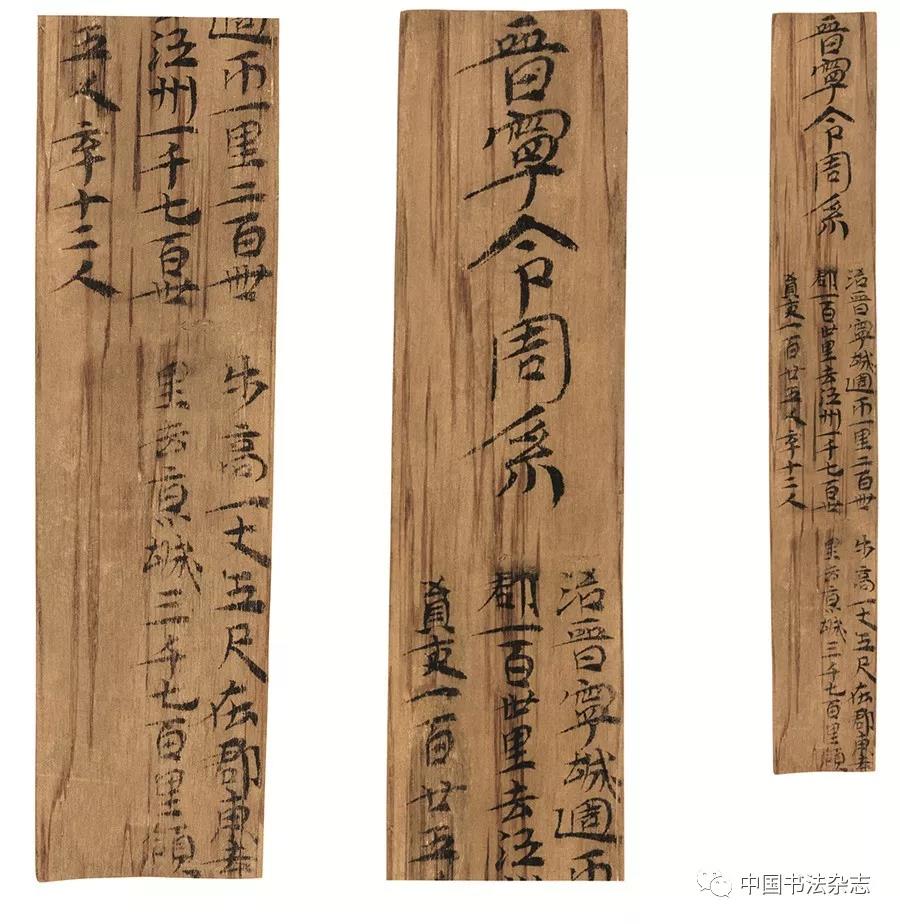 晉寧令周系
治晉寧城週帀一里二百卌步高一丈五尺在郡東去
郡一百卅里去江州一千七百卌里去京城三千七百里領
員吏一百廿五人卒十二人
晉寧令周系
治晉寧城週帀
郡一百卅里去江
員吏一百廿五
週帀一里二百卌步高一丈五尺在郡東去
江州一千七百卌里去京城三千七百里領
五人卒十二人
中国书法杂志